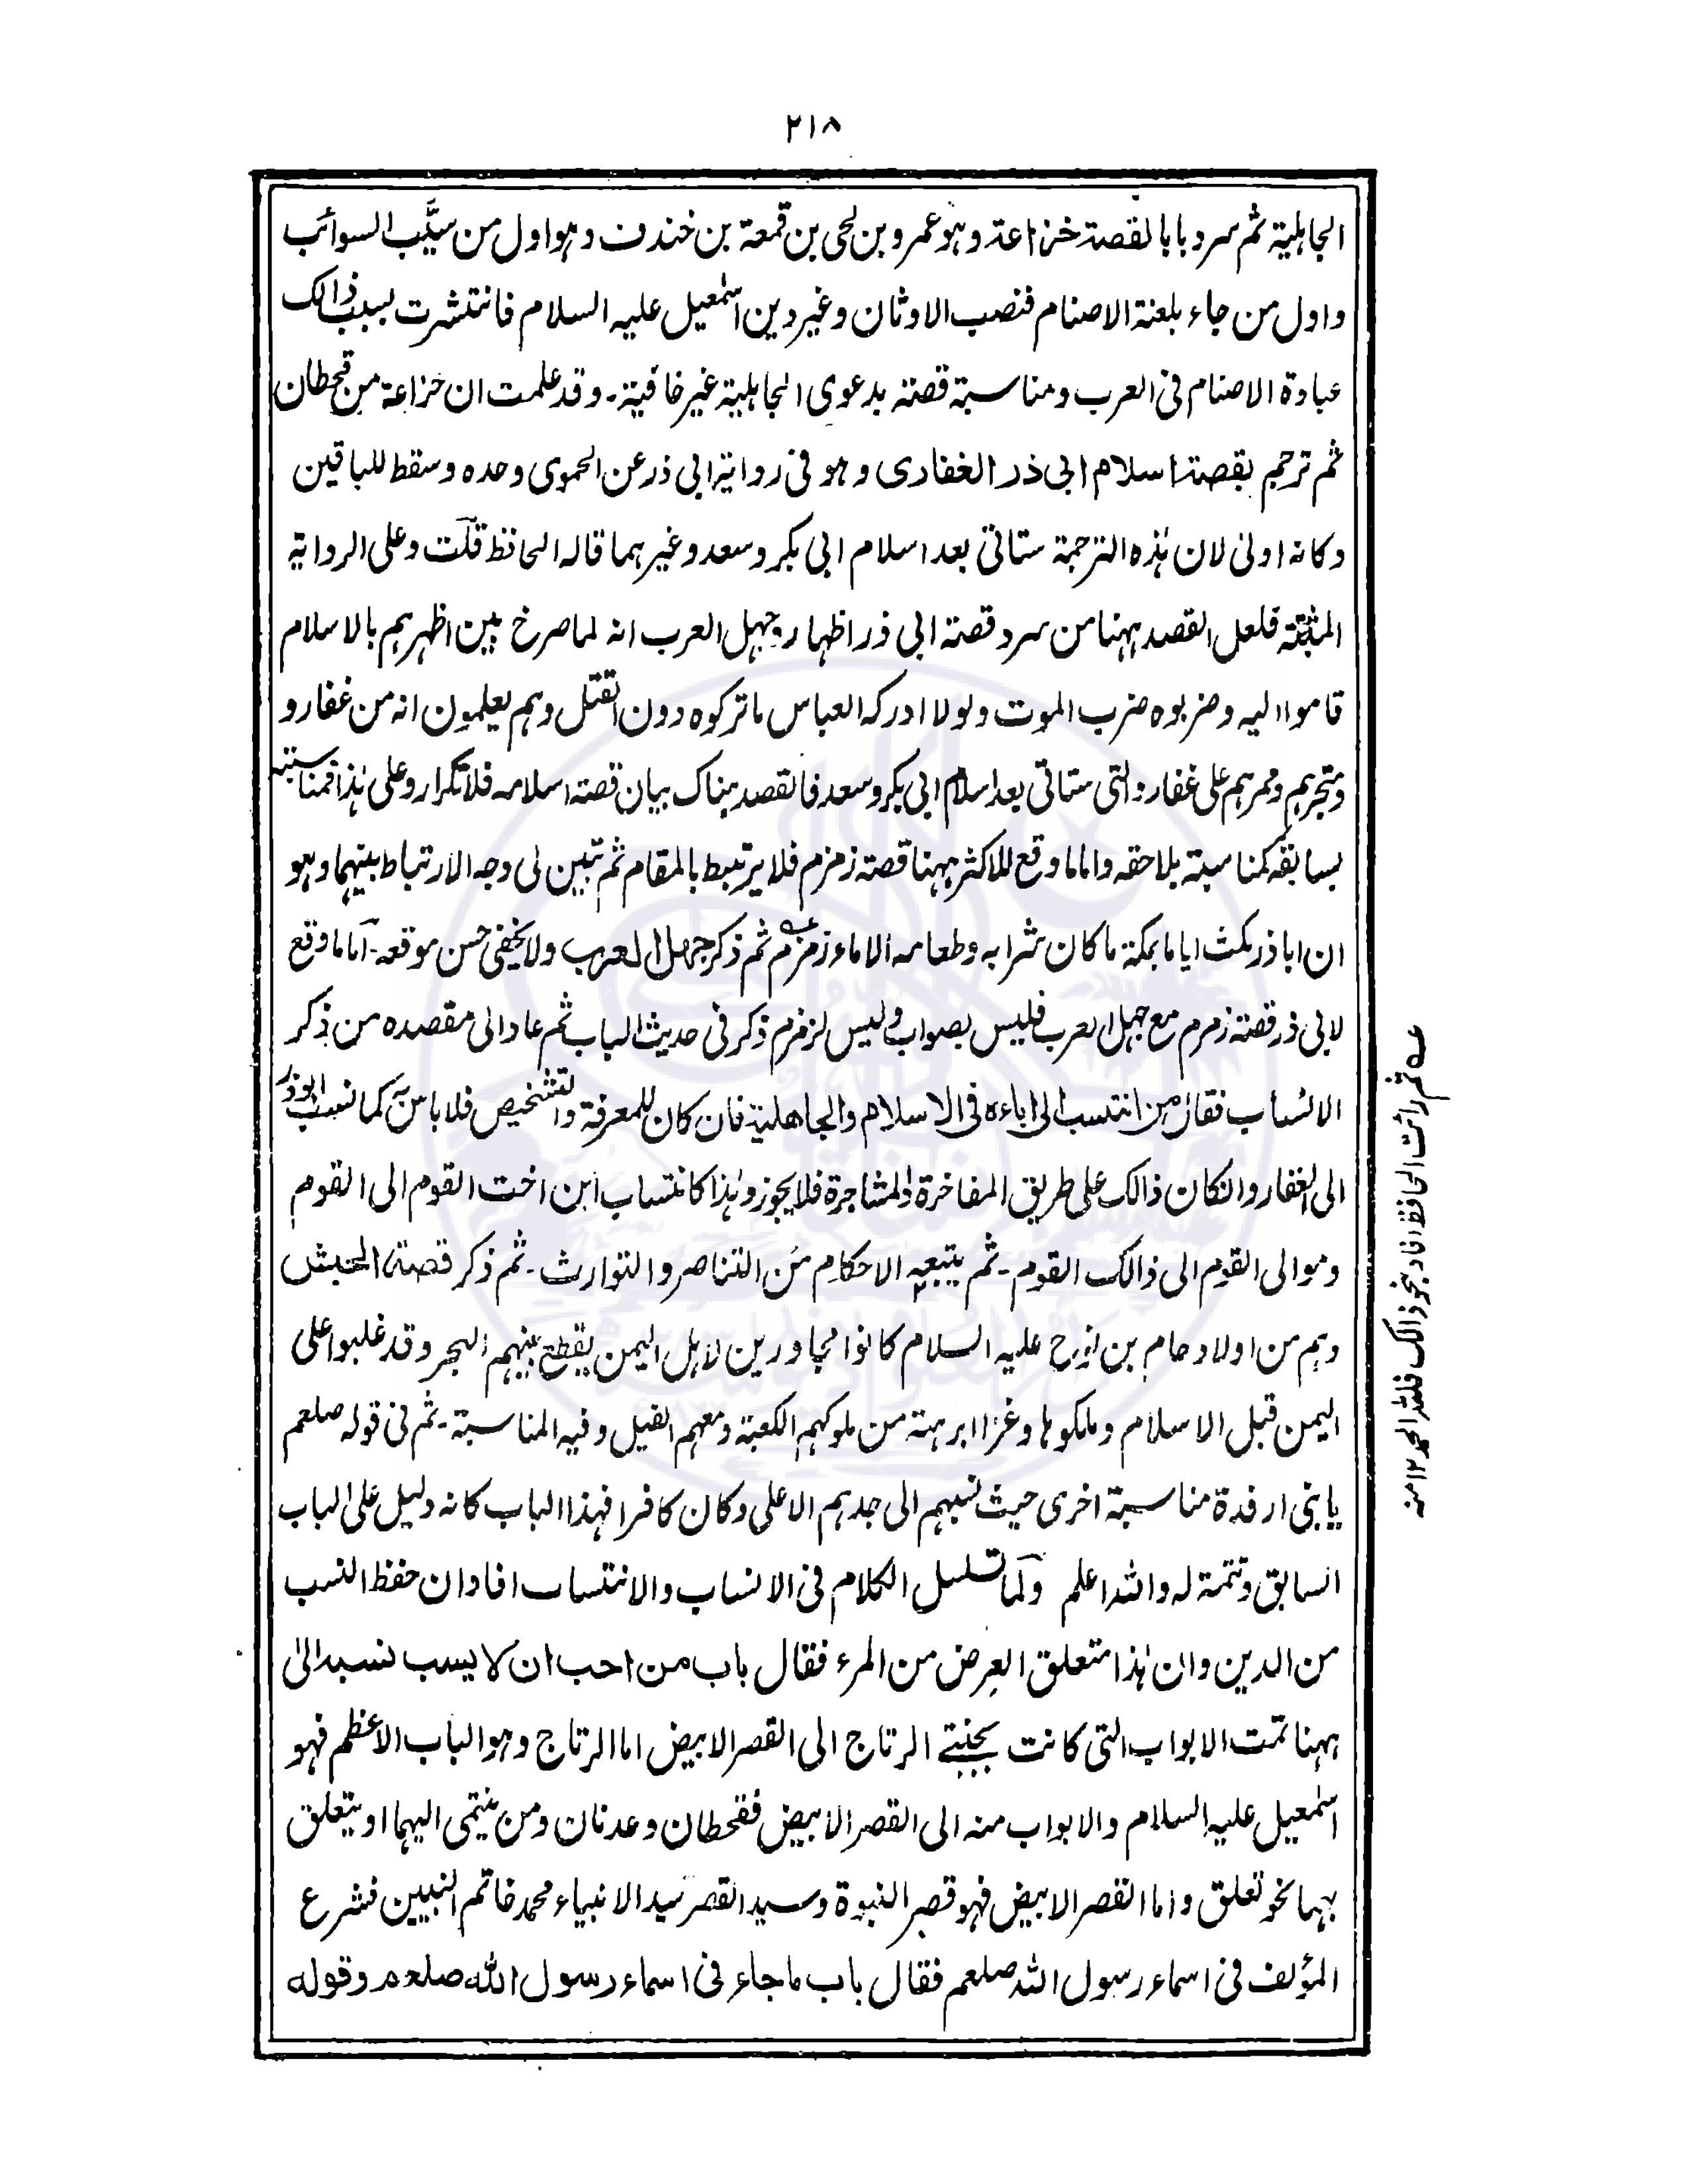 ٢١٨
الجاهلية ثم سرد بابا لقصة خزاعة وهو عمرو بن لحى بن قمعة بن خندف وهو اول من سيَّب السوائب
واول من جاء بلعنة الاصنام فنصب الاوثان وغير دين اسمعيل عليه السلام فانتشرت بسبب ذالك
عبادة الاصنام فى العرب ومناسبة قصته بدعوى الجاهلية غير خافية۔ وقد علمت ان خزاعة من قحطان
ثم ترجم بقصة اسلام ابى ذر الغفارى وهو فى رواية ابى ذر عن الحموى وحده وسقط للباقين
وكانه اولى لان هذه الترجمة ستاتى بعد اسلام ابى بكر وسعد وغيرهما قاله الحافظ قلت وعلى الرواية
المثبتة فلعل القصد ههنا من سرد قصة ابى ذر اظهار جهل العرب انه لما صرخ بين اظهرهم بالاسلام
قاموا اليه وضربوه ضرب الموت ولولا ادركه العباس ما تركوه دون القتل وهم يعلمون انه من غفار و
متجرهم وممرهم على غفار والتى ستاتى بعد اسلام ابى بكر وسعد فالقصد هناك بيان قصة اسلامه فلا تكرار وعلى هذا فمناسبته
بسابقه كمناسبة بلاحقه واما ما وقع للاكثر ههنا قصة زمزم فلا يرتبط بالمقام ثم تبين لى وجه الارتباط بينهما وهو
ان اباذر مكث اياما بمكة ما كان شرابه وطعامه الا ماء زمزم عــه ثم ذكر جهل العرب ولا يخفى حسن موقعه۔ اما ما وقع
لابى ذر قصة زمزم مع جهل العرب فليس بصواب وليس لزمزم ذكر فى حديث الباب ثم عاد الى مقصده من ذكر
الانساب فقال من انتسب الى اباءه فى الاسلام والجاهلية فان كان للمعرفة والتشخيص فلا باس به كما نسب ابوذر
الى الغفار وانكان ذالك على طريق المفاخرة والمشاجرة فلا يجوز وهذا كانتساب ابن اخت القوم الى القوم
وموالى القوم الى ذالك القوم۔ ثم يتبعه الاحكام من التناصر والتوارث۔ ثم ذكر قصة الحبش
وهم من اولاد حام بن نوح عليه السلام كانوا مجاورين لاهل اليمن يقطع بينهم البحر وقد غلبوا على
اليمن قبل الاسلام وملكوها وغزا ابرهة من ملوكهم الكعبة ومعهم الفيل وفيه المناسبة۔ ثم فى قوله صلعم
يا بنى ارفدة مناسبة اخرى حيث نسبهم الى جدهم الاعلى وكان كافرا فهذا الباب كانه دليل على الباب
السابق وتتمة له والله اعلم ولما تسلسل الكلام فى الانساب والانتساب افاد ان حفظ النسب
من الدين وان هذا متعلق العِرض من المرء فقال باب من احب ان لا يسب نسبه الى
ههنا تمت الابواب التى كانت بجنبتے الرتاج الى القصر الابيض اما الرتاج وهو الباب الاعظم فهو
اسمعيل عليه السلام والابواب منه الى القصر الابيض فقحطان وعدنان ومن ينتمى اليهما او يتعلق
بهما نحو تعلق واما القصر الابيض فهو قصر النبوة وسيد القصر سيد الانبياء محمد خاتم النبيين فشرع
المؤلف فى اسماء رسول الله صلعم فقال باب ما جاء فى اسماء رسول الله صلعم وقوله
عــه ثم رائت الحافظ افاد بنحو ذالك فلله الحمد ١٢ منه